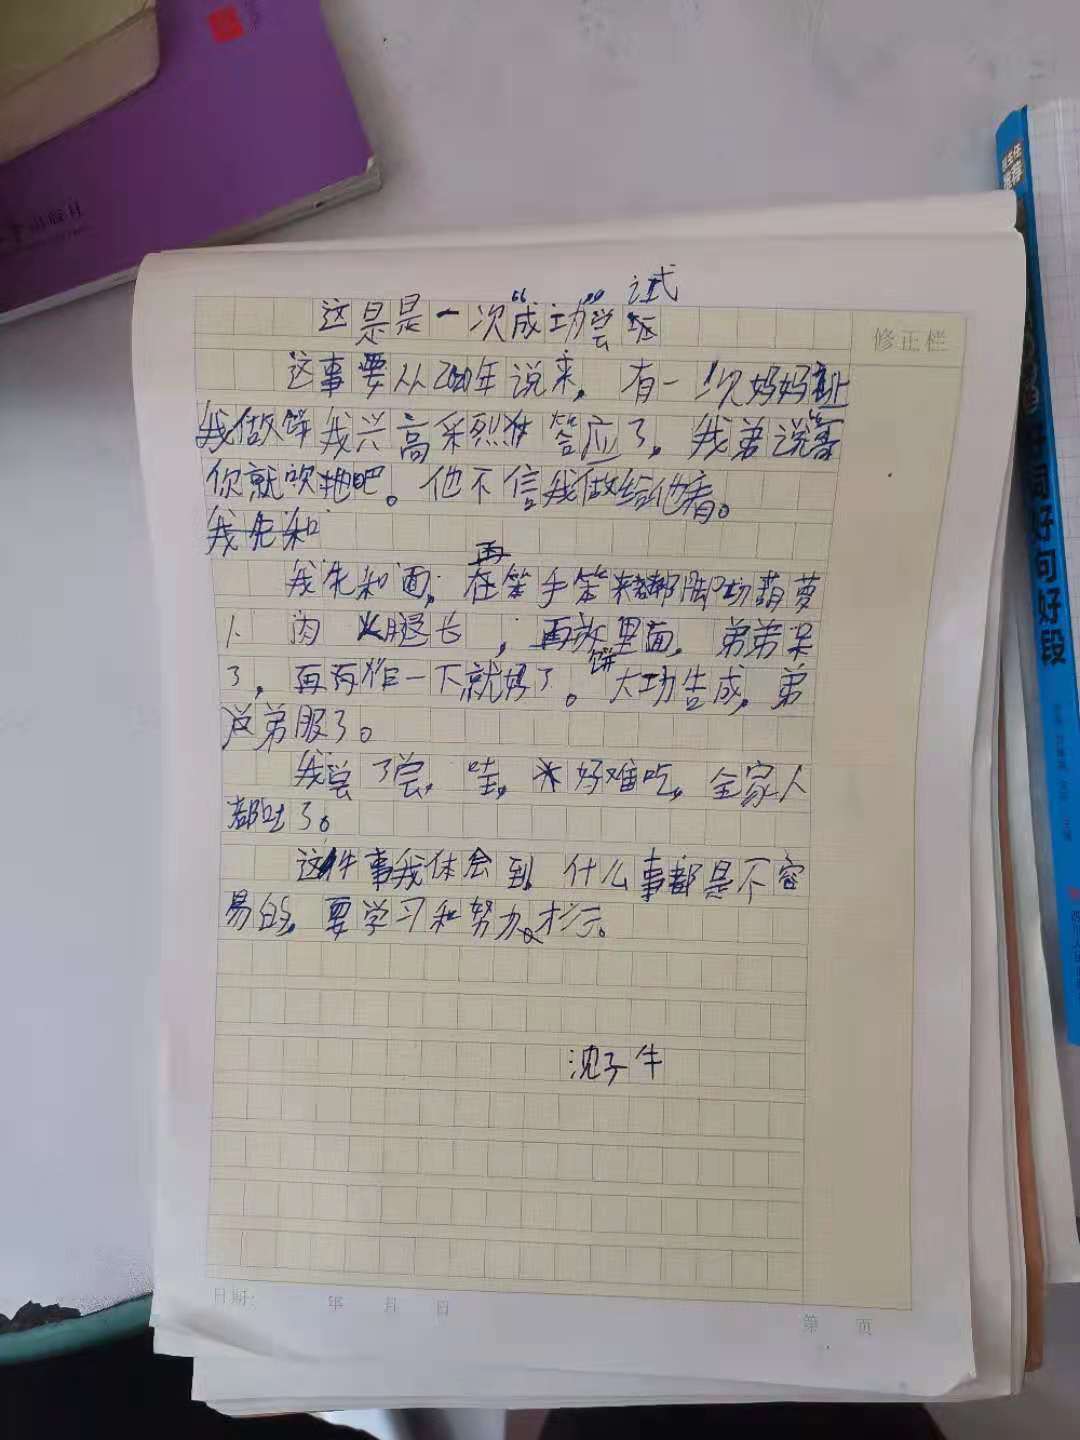 出版社
好词好句好段
修正栏
试
这是是一次“成功”尝
这事要从2020年说来，有一次妈妈让
我做饼我兴高采烈 答应了。我弟说
你就吹 吧。他不信我做给他看。
我先和
再
我先和面，在笨手笨 胡萝
卜 肉 火腿长 ，再放里面。弟弟呆
饼
了，再 作一下就好了。 大功告成，弟
弟服了。
我尝了尝，哇，好难吃，全家人
都吐了。
这件事我体会到 什么事都是不容
易的，要学习和努力，才行。
沈子牛
日期： 年 月 日
第 页